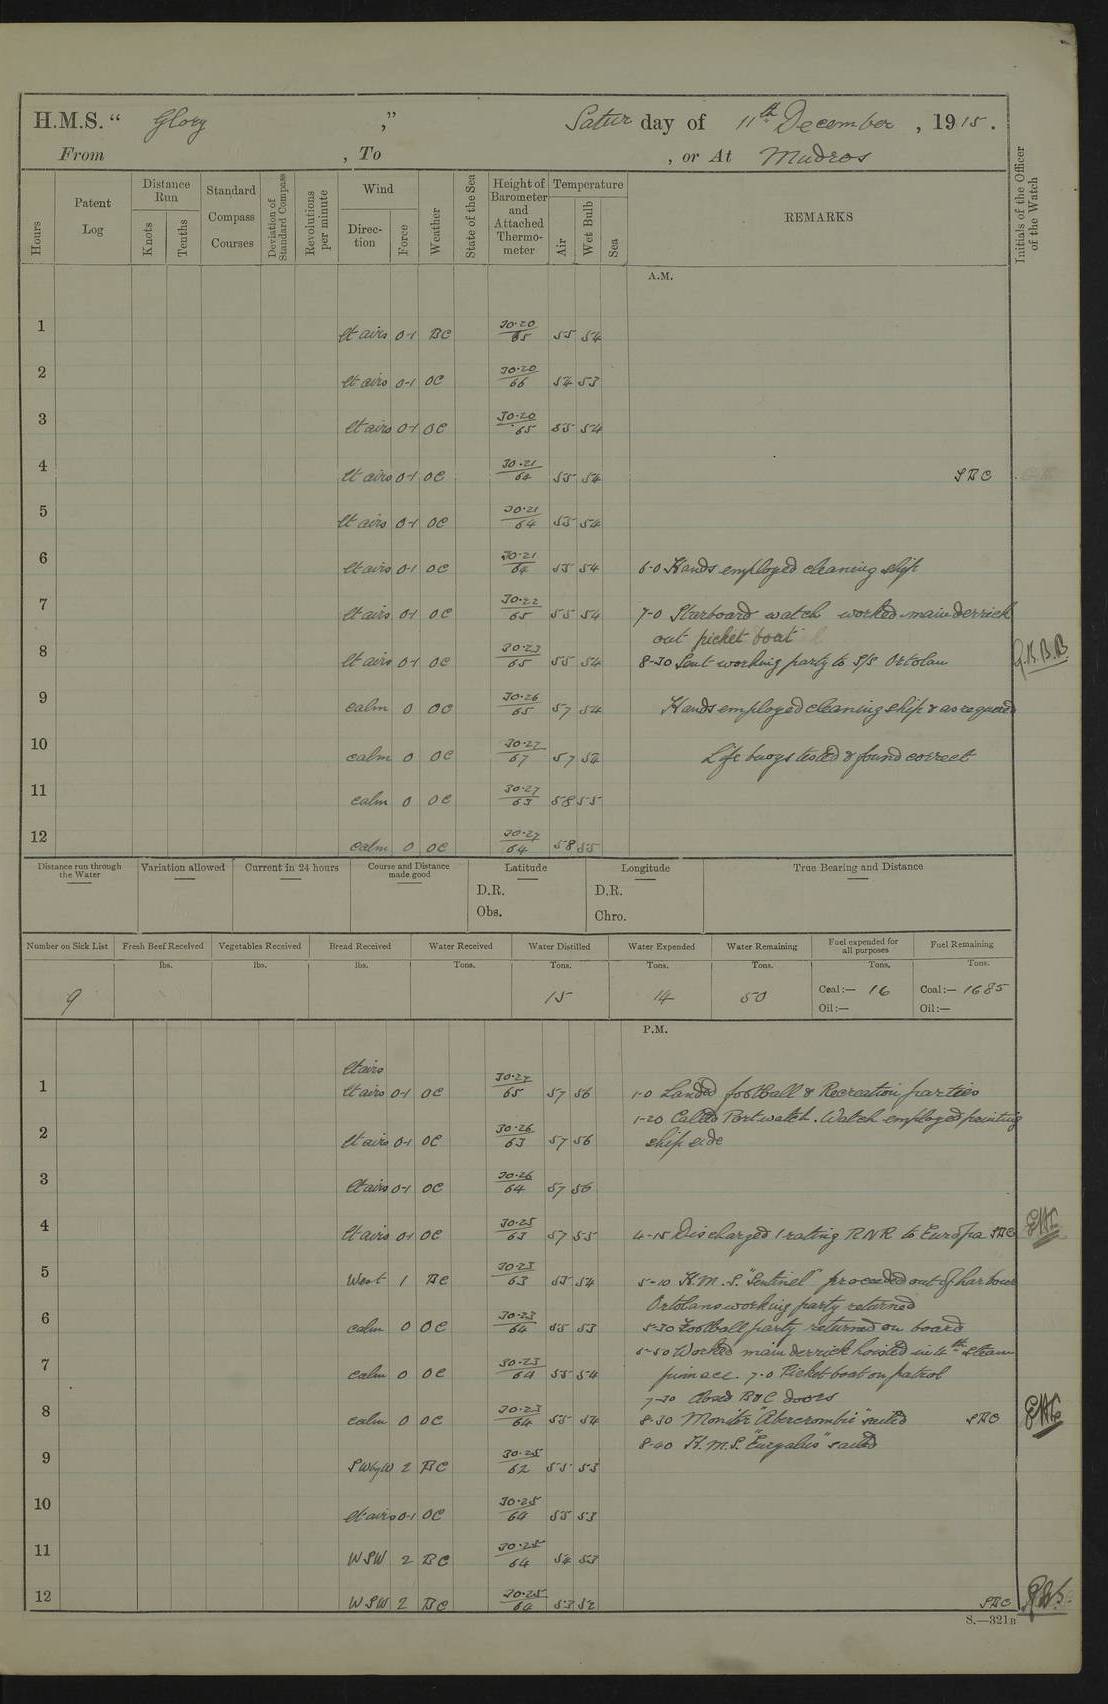 H.M.S. " Glory ," Saturday of 11th December , 1915.
From , To , or At Mudros
Hours
Patent Log
Distance Run
Knots
Tenths
Standard Compass Courses
Deviation of Standard Compass
Revolutions per minute
Wind
Direction
Force
Weather
State of the Sea
Height of Barometer and Attached Thermometer
Temperature
Air
Wet Bulb
Sea
REMARKS
Initials of the Officer of the Watch
A.M.
1 lt airs 0-1 BC 30.20/65 55 54
2 lt airs 0-1 OC 30.20/66 54 53
3 lt airs 0-1 OC 30.20/65 55 54
4 lt airs 0-1 OC 30.21/64 55 54 SBC
5 lt airs 0-1 OC 30.21/64 55 54
6 lt airs 0-1 OC 30.21/64 55 54 6-0 Hands employed cleaning ship
7 lt airs 0-1 OC 30.22/65 55 54 7-0 Starboard watch worked main derrick
out picket boat
8 lt airs 0-1 OC 30.23/65 55 54 8-30 Sent working party to S/S Ortolan
9 calm 0 OC 30.26/65 57 54 Hands employed cleaning ship & as requered
10 calm 0 OC 30.27/67 57 54 Life buoys tested & found correct
11 calm 0 OC 30.27/63 58 55
12 calm 0 OC 30.27/64 58 55
Distance run through the Water
Variation allowed
Current in 24 hours
Course and Distance made good
Latitude
D.R.
Obs.
Longitude
D.R.
Chro.
True Bearing and Distance
Number on Sick List
Fresh Beef Received
Vegetables Received
Bread Received
Water Received
Water Distilled
Water Expended
Water Remaining
Fuel expended for all purposes
Fuel Remaining
lbs. lbs. lbs. Tons. Tons. Tons. Tons. Tons. Tons.
9 15 14 50 Coal:— 16 Coal:— 1685
Oil:— Oil:—
P.M.
lt airs
1 lt airs 0-1 OC 30.27/65 57 56 1-0 Landed football & Recreation parties
1-20 Called Port watch. Watch employed painting
2 lt airs 0-1 OC 30.26/63 57 56 ship side
3 lt airs 0-1 OC 30.26/64 57 56
4 lt airs 0-1 OC 30.25/63 57 55 4-15 Discharged 1 rating RNR to Europa SBC
5 West 1 BC 30.23/63 55 54 5-10 H.M.S. "Sentinel" proceeded out of harbour
Ortolans working party returned
6 calm 0 OC 30.23/64 55 53 5-30 Football party returned on board
5-50 Worked main derrick hoisted in 4th Steam
7 calm 0 OC 30.23/64 55 54 pinnace. 7-0 Picket boat on patrol
7-30 Closed B&C doors
8 calm 0 OC 30.23/64 55 54 8-30 Monitor "Abercrombie" sailed SBC
8-40 H.M.S. "Euryalus" sailed
9 SWbyW 2 BC 30.25/62 55 53
10 lt airs 0-1 OC 30.25/64 55 53
11 WSW 2 BC 30.25/64 54 53
12 WSW 2 BC 30.25/64 53 52 SBC
S.—321B